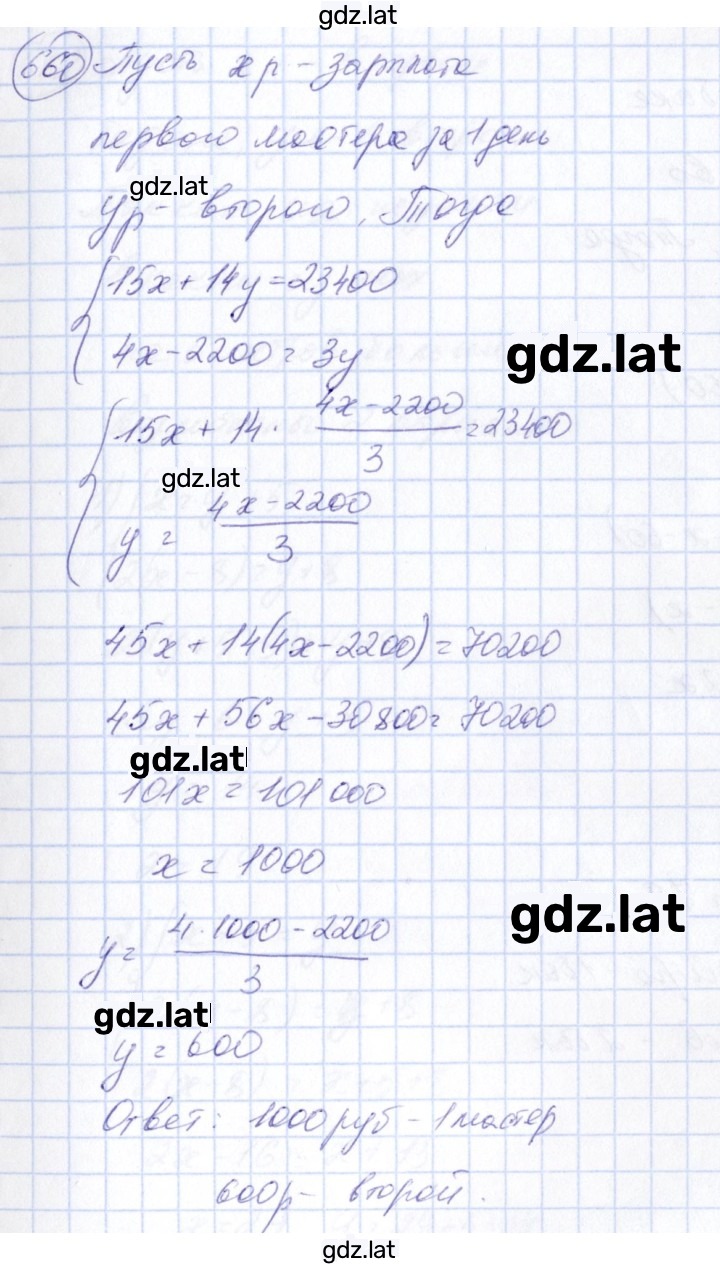 gdz.lat
660 Пусть x р - зарплата
первого мастера за 1 день
gdz.lat
y р - второго. Тогда
15x + 14y = 23400
4x - 2200 = 3y
gdz.lat
15x + 14 · (4x - 2200)/3 = 23400
gdz.lat
y = (4x - 2200)/3
45x + 14(4x - 2200) = 70200
45x + 56x - 30800 = 70200
gdz.lat
101x = 101000
x = 1000
gdz.lat
y = (4 · 1000 - 2200)/3
gdz.lat
y = 600
Ответ: 1000 руб - 1 мастер
600р - второй.
gdz.lat